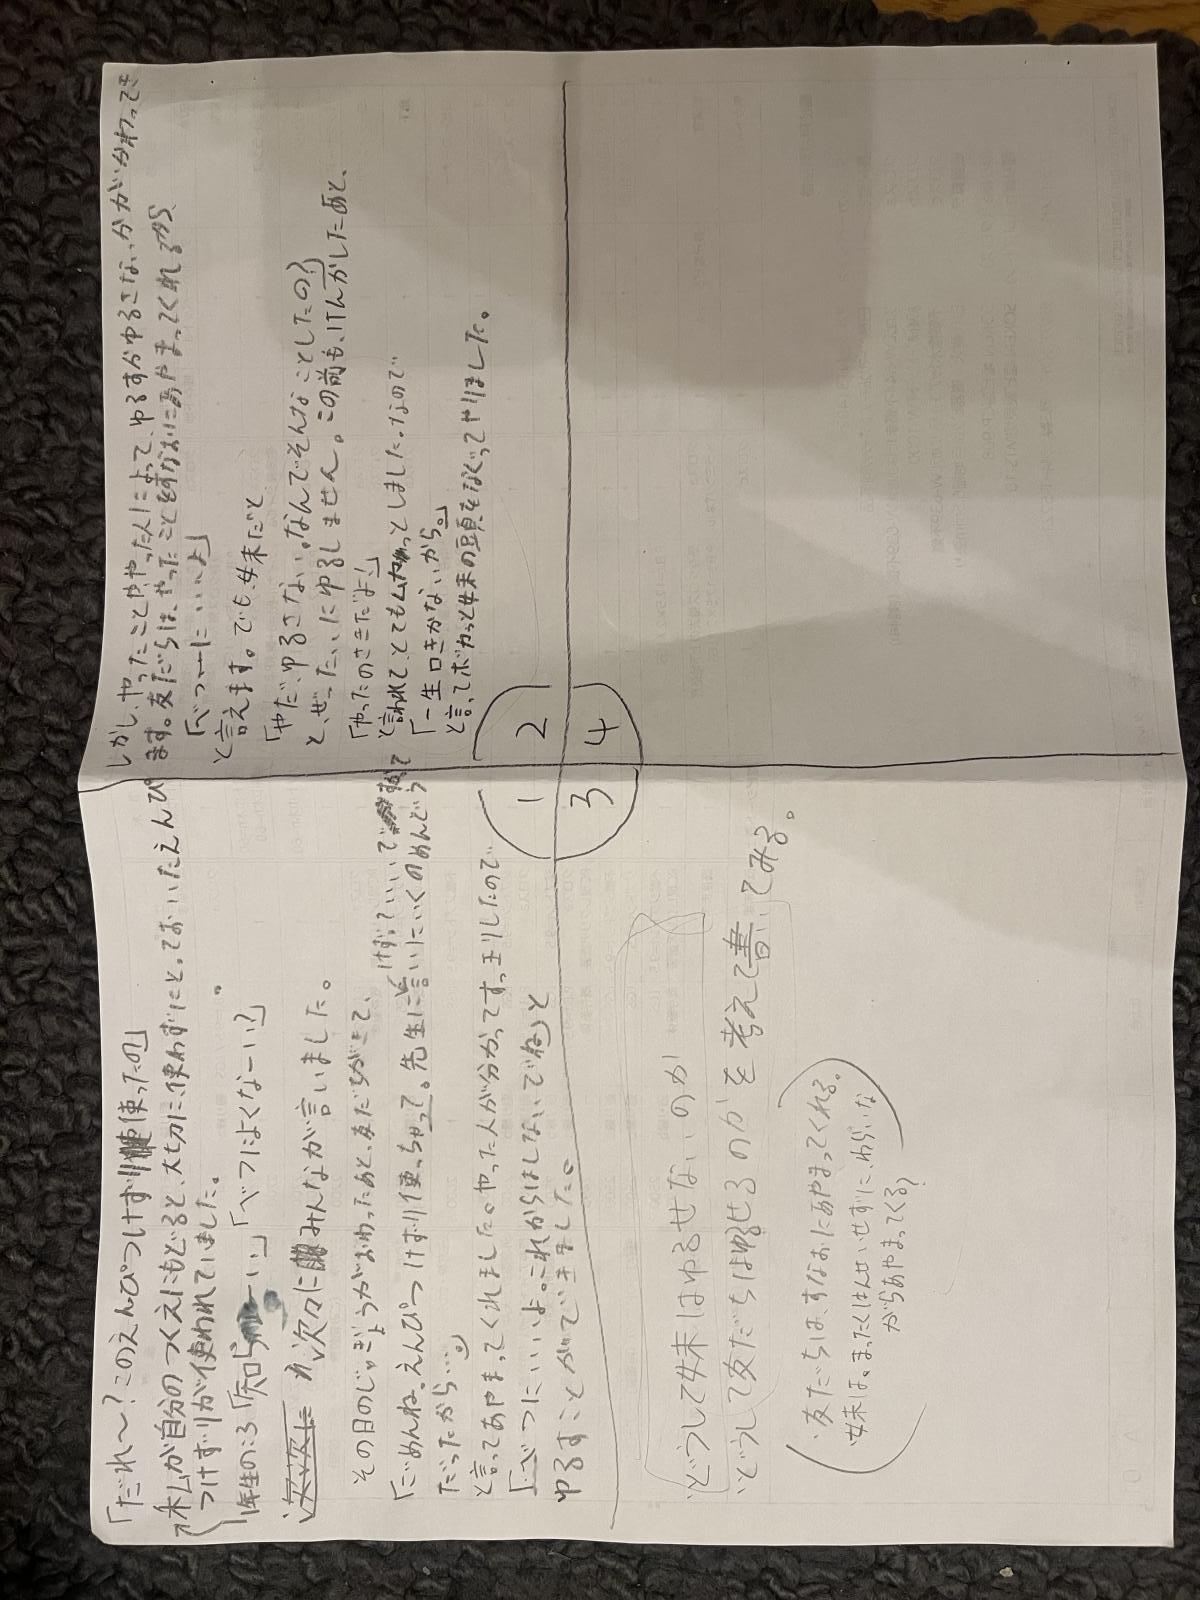 「だれ～？このえんぴつけずり使ったの」
私が自分のつくえにもどると、大切に、使わずにとっておいたえんぴ
つけずりが使われていました。
1年生のころ「知らーーい」「べつによくなーい？」
次々にみんなが言いました。
その日のじゅぎょうがおわったあと、友だちがきて、
「ごめんね。えんぴつけずり使っちゃって。先生にけずっていいですかって言いにいくのめんどう
だったから…。」
と言ってあやまってくれました。やった人が分かってすっきりしたので
「べつにいいよ。これからはしないでね」と
ゆるすことができました。
しかし、やったことや、やった人によって、ゆるすかゆるさないかがかわってき
ます。友だちは、やったことをすなおにあやまってくれるから
「べつーにいいよ」
と言えます。でも、妹だと
「やだ、ゆるさない。なんでそんなことしたの？」
と、ぜったいにゆるしません。この前も、けんかしたあと、
「やったのさきだよ！」
と言われて、とてもムカッとしました。なので
「一生口きかないから。」
と言ってボカッと妹の頭をなぐってやりました。
1
2
3
4
・どうして妹はゆるせないのか
・どうして友だちはゆるせるのかを考えて書いてみる。
・友だちは、すなおにあやまってくれる。
・妹は。まったくはんせいせずに、わらいな
がらあやまってくる？